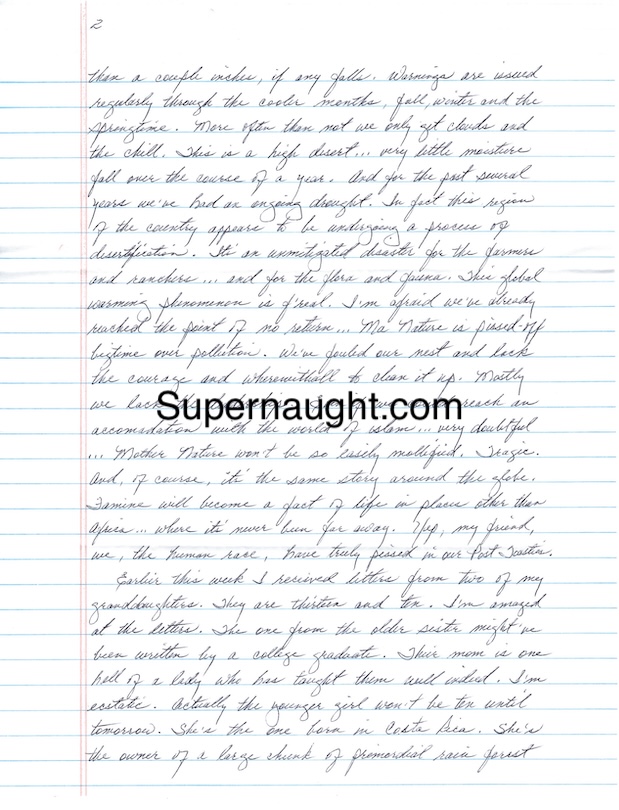 2
than a couple inches, if any falls. Warnings are issued
regularly through the cooler months, fall, winter and the
springtime. More often than not we only get clouds and
the chill. This is a high desert... very little moisture
fall over the course of a year. And for the past several
years we've had an ongoing drought. In fact this region
of the country appears to be undergoing a process of
desertification. It's an unmitigated disaster for the farmers
and ranchers... and for the flora and fauna. This global
warming phenomenon is f'real. I'm afraid we've already
reached the point of no return... Ma Nature is pissed-off
bigtime over pollution. We've fouled our nest and lack
the courage and wherewithall to clean it up. Mostly
we lack the reach an
Supernaught.com
accomadation with the world of islam... very doubtful
... Mother Nature won't be so easily mollified. Tragic.
And, of course, it's the same story around the globe.
Famine will become a fact of life in places other than
Africa... where it's never been far away. Yep, my friend,
we, the human race, have truly pissed in our Post Toasties.
Earlier this week I received letters from two of my
granddaughters. They are thirteen and ten. I'm amazed
at the letters. The one from the older sister might've
been written by a college graduate. Their mom is one
hell of a lady who has taught them well indeed. I'm
ecstatic. Actually the younger girl won't be ten until
tomorrow. She's the one born in Costa Rica. She's
the owner of a large chunk of primordial rain forest